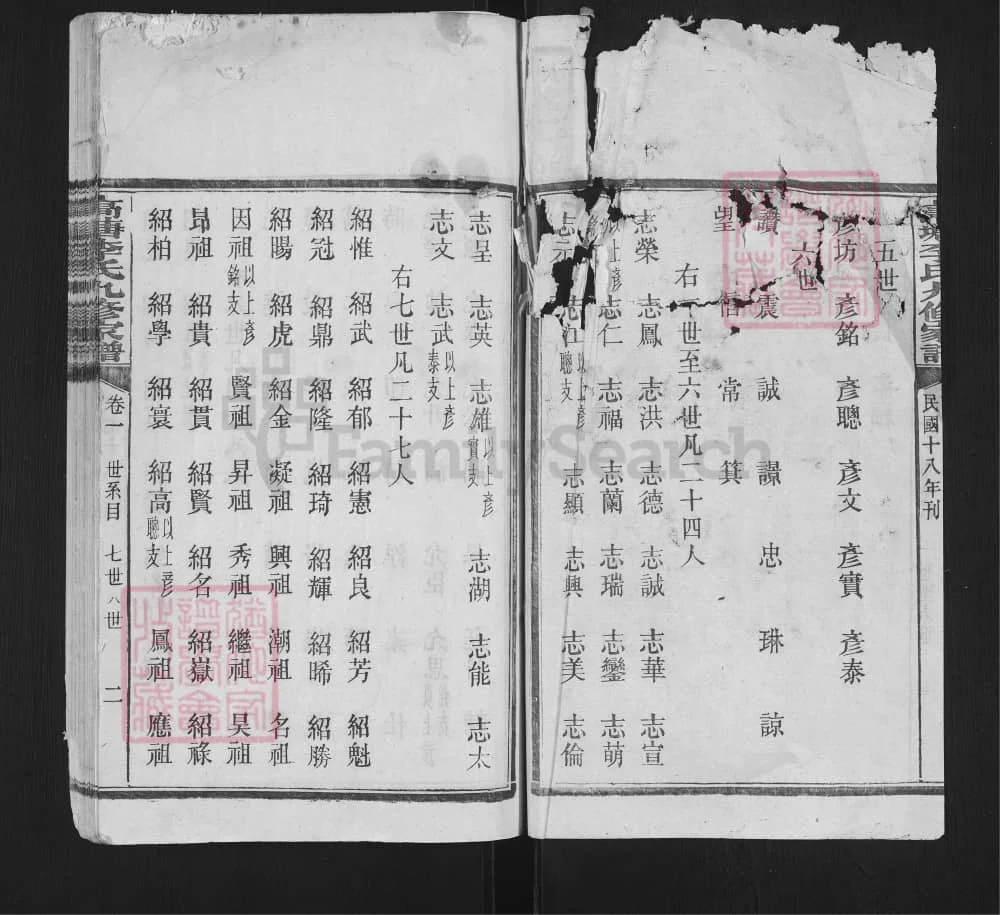 李氏九修家譜
民國十八年刊
五世
彥坊 彥銘 彥聰 彥文 彥實 彥泰
六世
讚 震 誠 譞 忠 琳 諒
望 信 常 箕
右一世至六世凡二十四人
志榮 志鳳 志洪 志德 志誠 志華 志宣
以上彥 志仁 志福 志蘭 志瑞 志鑾 志萌
志元 志江 以上彥聰支 志顯 志興 志美 志倫
志呈 志英 志雄 以上彥實支 志湖 志能 志太
志文 志武 以上彥泰支
右七世凡二十七人
紹惟 紹武 紹郁 紹憲 紹良 紹芳 紹魁
紹冠 紹鼎 紹隆 紹琦 紹輝 紹晞 紹勝
紹陽 紹虎 紹金 凝祖 興祖 潮祖 名祖
因祖 以上彥銘支 賢祖 昇祖 秀祖 繼祖 昊祖
昻祖 紹貴 紹貫 紹賢 紹名 紹嶽 紹祿
紹柏 紹學 紹寰 紹高 以上彥聰支 鳳祖 應祖
李氏九修家譜 卷一 世系目 七世 八世 二
FamilySearch